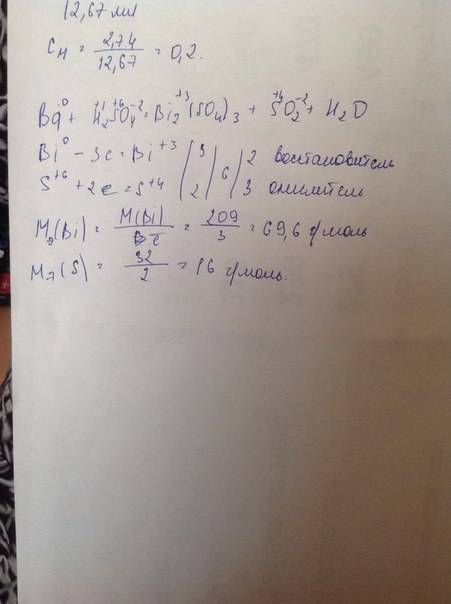 12,67 мл
Cн = 2,74 / 12,67 = 0,2.
Bi⁰ + H₂⁺¹S⁺⁶O₄⁻² = Bi₂⁺³(SO₄)₃ + S⁺⁴O₂⁻² + H₂O
Bi⁰ - 3e = Bi⁺³ | 3 | 6 | 2 восстановитель
S⁺⁶ + 2e = S⁺⁴ | 2 | | 3 окислитель
Mэ(Bi) = M(Bi) / 3ē = 209 / 3 = 69,6 г/моль
Mэ(S) = 32 / 2 = 16 г/моль.